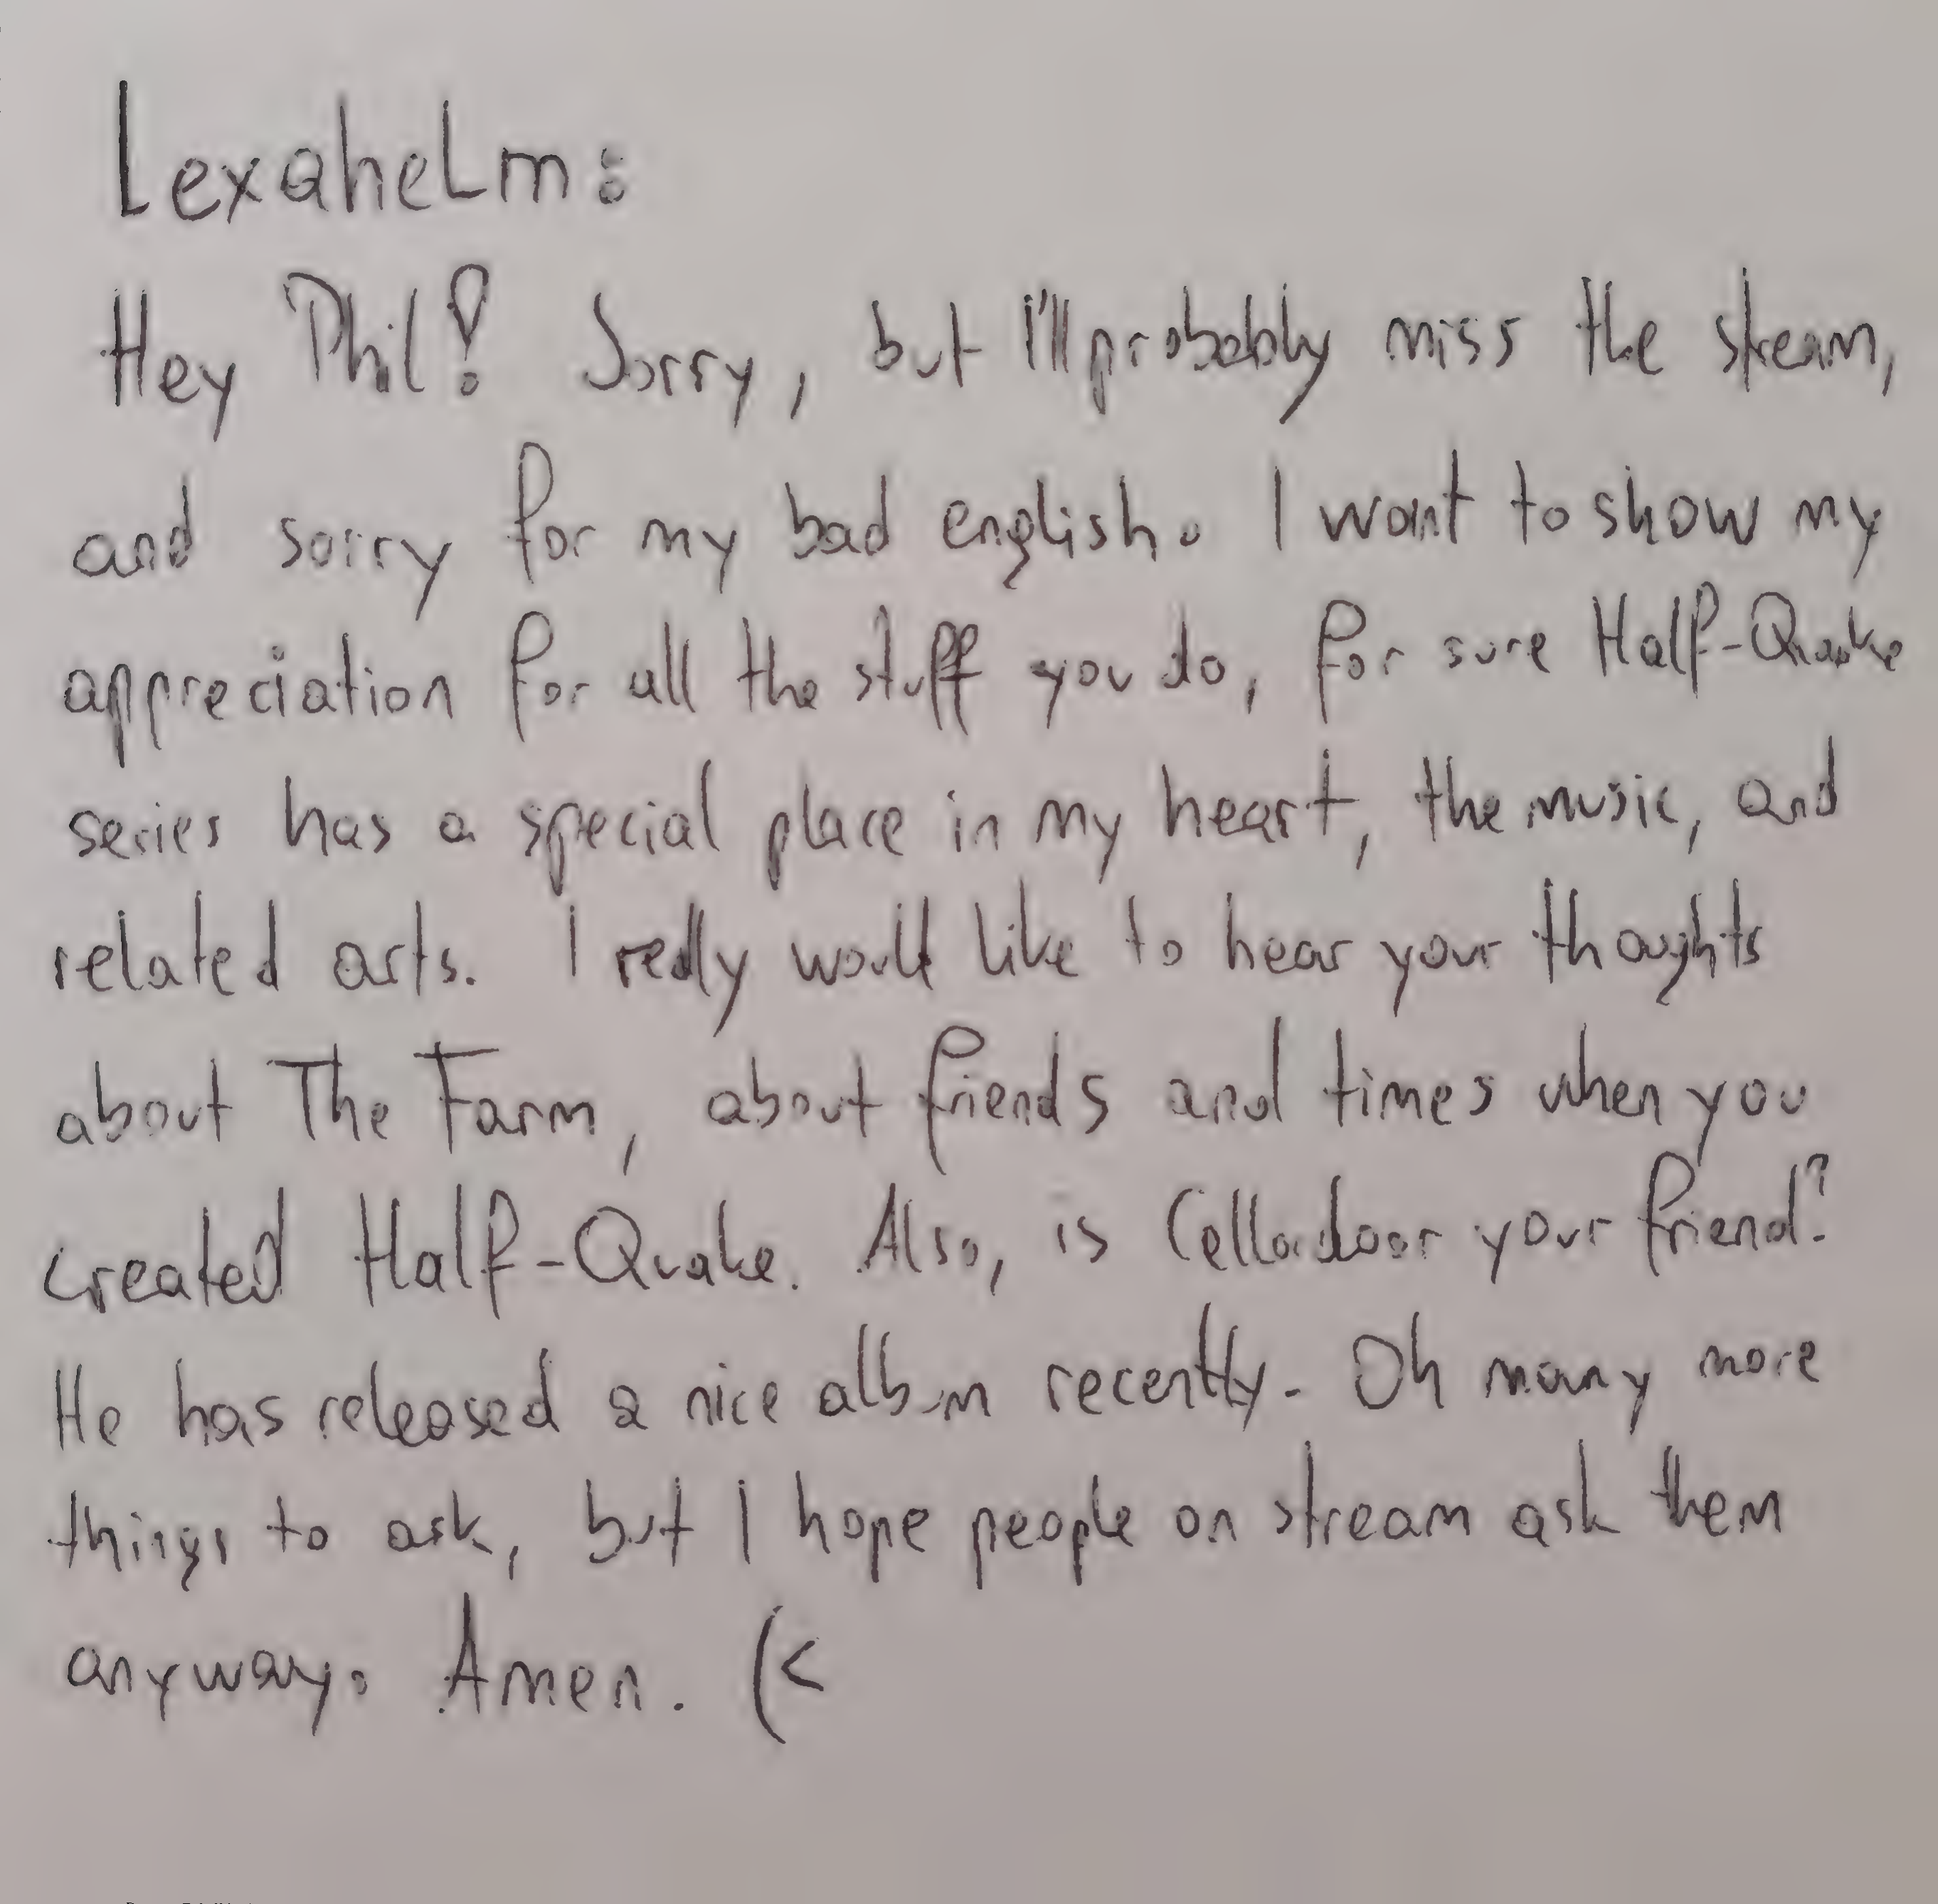 LexaheLm:
Hey Phil! Sorry, but I'll probably miss the stream,
and sorry for my bad english. I want to show my
appreciation for all the stuff you do, for sure Half-Quake
series has a special place in my heart, the music, and
related arts. I really would like to hear your thoughts
about The Farm, about friends and times when you
created Half-Quake. Also, is Celladoor your friend?
He has released a nice album recently. Oh many more
things to ask, but I hope people on stream ask them
anyway. Amen. (<